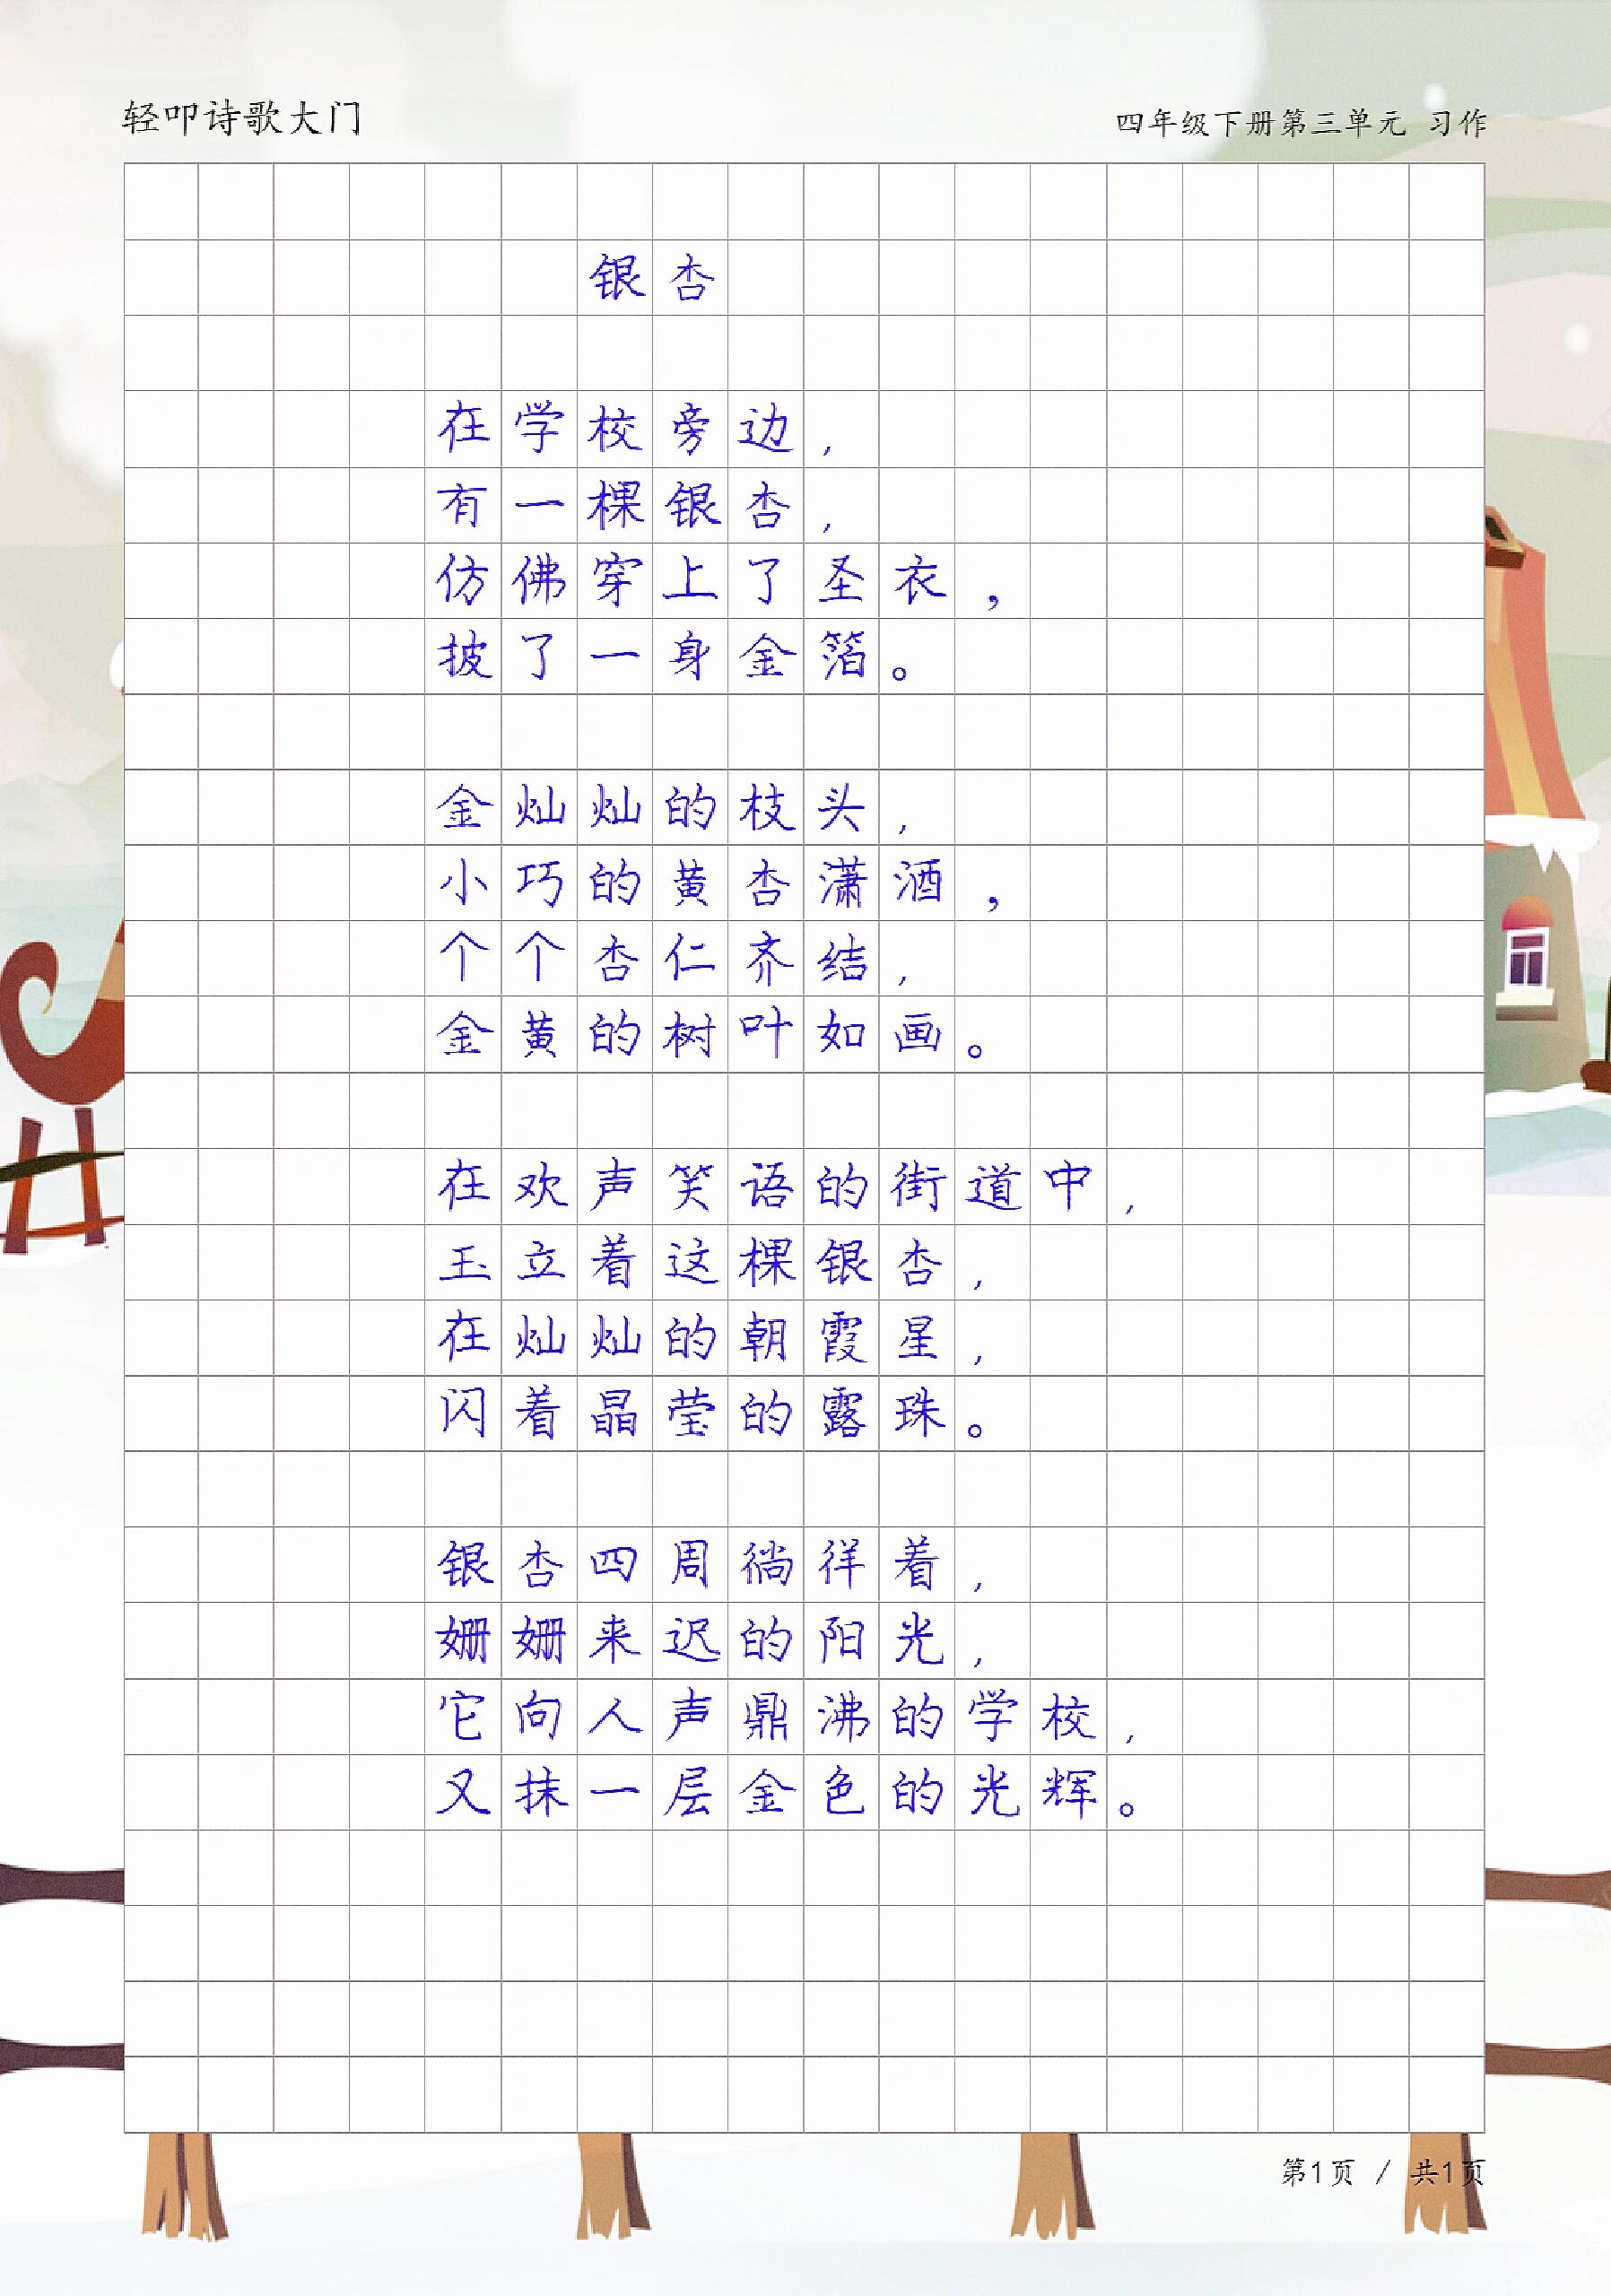 轻叩诗歌大门
四年级下册第三单元 习作
银杏
在学校旁边，
有一棵银杏，
仿佛穿上了圣衣，
披了一身金箔。
金灿灿的枝头，
小巧的黄杏潇洒，
个个杏仁齐结，
金黄的树叶如画。
在欢声笑语的街道中，
玉立着这棵银杏，
在灿灿的朝霞星，
闪着晶莹的露珠。
银杏四周徜徉着，
姗姗来迟的阳光，
它向人声鼎沸的学校，
又抹一层金色的光辉。
第1页 / 共1页